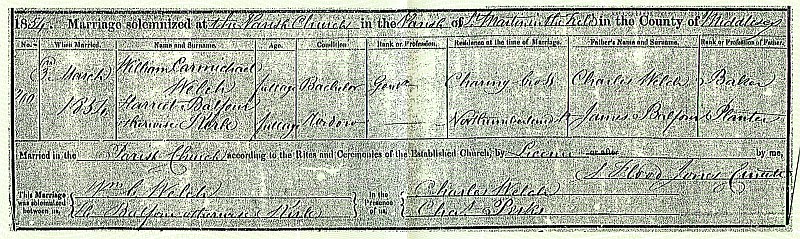 1854. Marriage solemnized at the Parish Church in the Parish of St Martin in the Fields in the County of Middlesex
No. When Married. Name and Surname. Age. Condition Rank or Profession. Residence at the time of Marriage. Father's Name and Surname. Rank or Profession of Father.
March 1854 William Carmichael Welch full age Bachelor Gent Charing Cross Charles Welch Baker
Harriet Balfour otherwise full age Northumberland St James Balfour Planter
Married in the Parish Church according to the Rites and Ceremonies of the Established Church, by Licence or after by me,
Flood Jones Curate
This Marriage was solemnized between us, Wm C. Welch
Balfour otherwise
In the Presence of us, Charles Welch
Chas